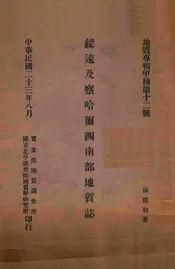 地質專報甲種第十二號
綏遠及察哈爾西南部地質誌
孫健初著
中華民國二十三年八月
實業部地質調查所
國立北平研究院地質學研究所
印行